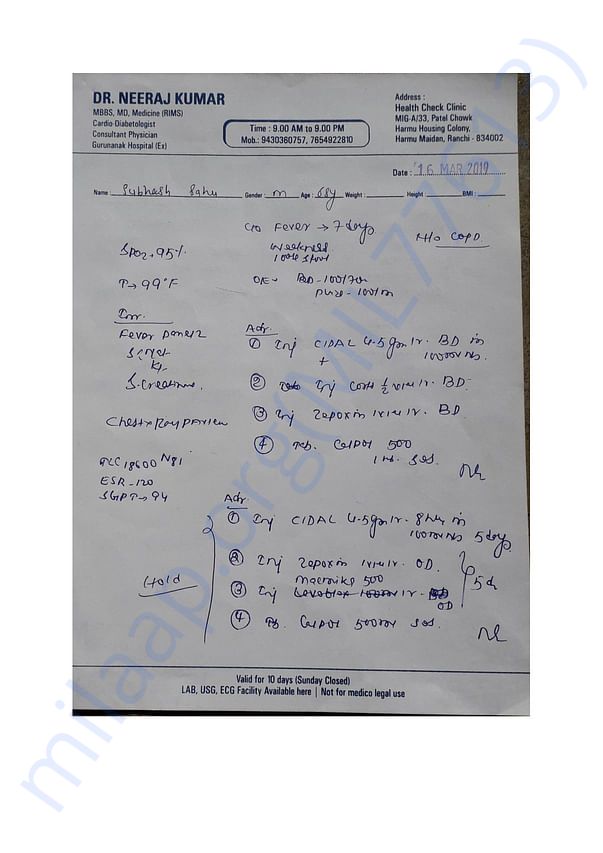 DR. NEERAJ KUMAR
MBBS, MD, Medicine (RIMS)
Cardio-Diabetologist
Consultant Physician
Gurunanak Hospital (Ex)
Time : 9.00 AM to 9.00 PM
Mob.: 9430360757, 7654922810
Address :
Health Check Clinic
MIG-A/33, Patel Chowk
Harmu Housing Colony,
Harmu Maidan, Ranchi - 834002
Date : 16 MAR 2019
Name : Subhash Sahu Gender : m Age : 68y Weight : Height : BMI :
C/O Fever → 7 days
Weakness
H/o COPD
SPO2 → 95%
T → 99°F
O/E - BP - 100/70
Pulse - 100/m
Inv.
Fever panel
S. Creatinine.
Chest X Ray PA view
TLC 18600 N81
ESR - 120
SGPT → 94
Adv.
① Inj CIDAL 4.5gm iv. BD in
+ 100ml NS.
② Inj iv. BD.
③ Inj Zopoxin iv. BD
④ Tab. Calpol 500
1 tab. SOS.
Adv.
① Inj CIDAL 4.5gm iv. 8hrly in
100ml NS 5 days
② Inj Zopoxin iv. OD.
500
③ Inj iv. OD
5d
④ Tb. Calpol 500mg SOS.
Hold
Valid for 10 days (Sunday Closed)
LAB, USG, ECG Facility Available here | Not for medico legal use
milaap.org(MIL77613)